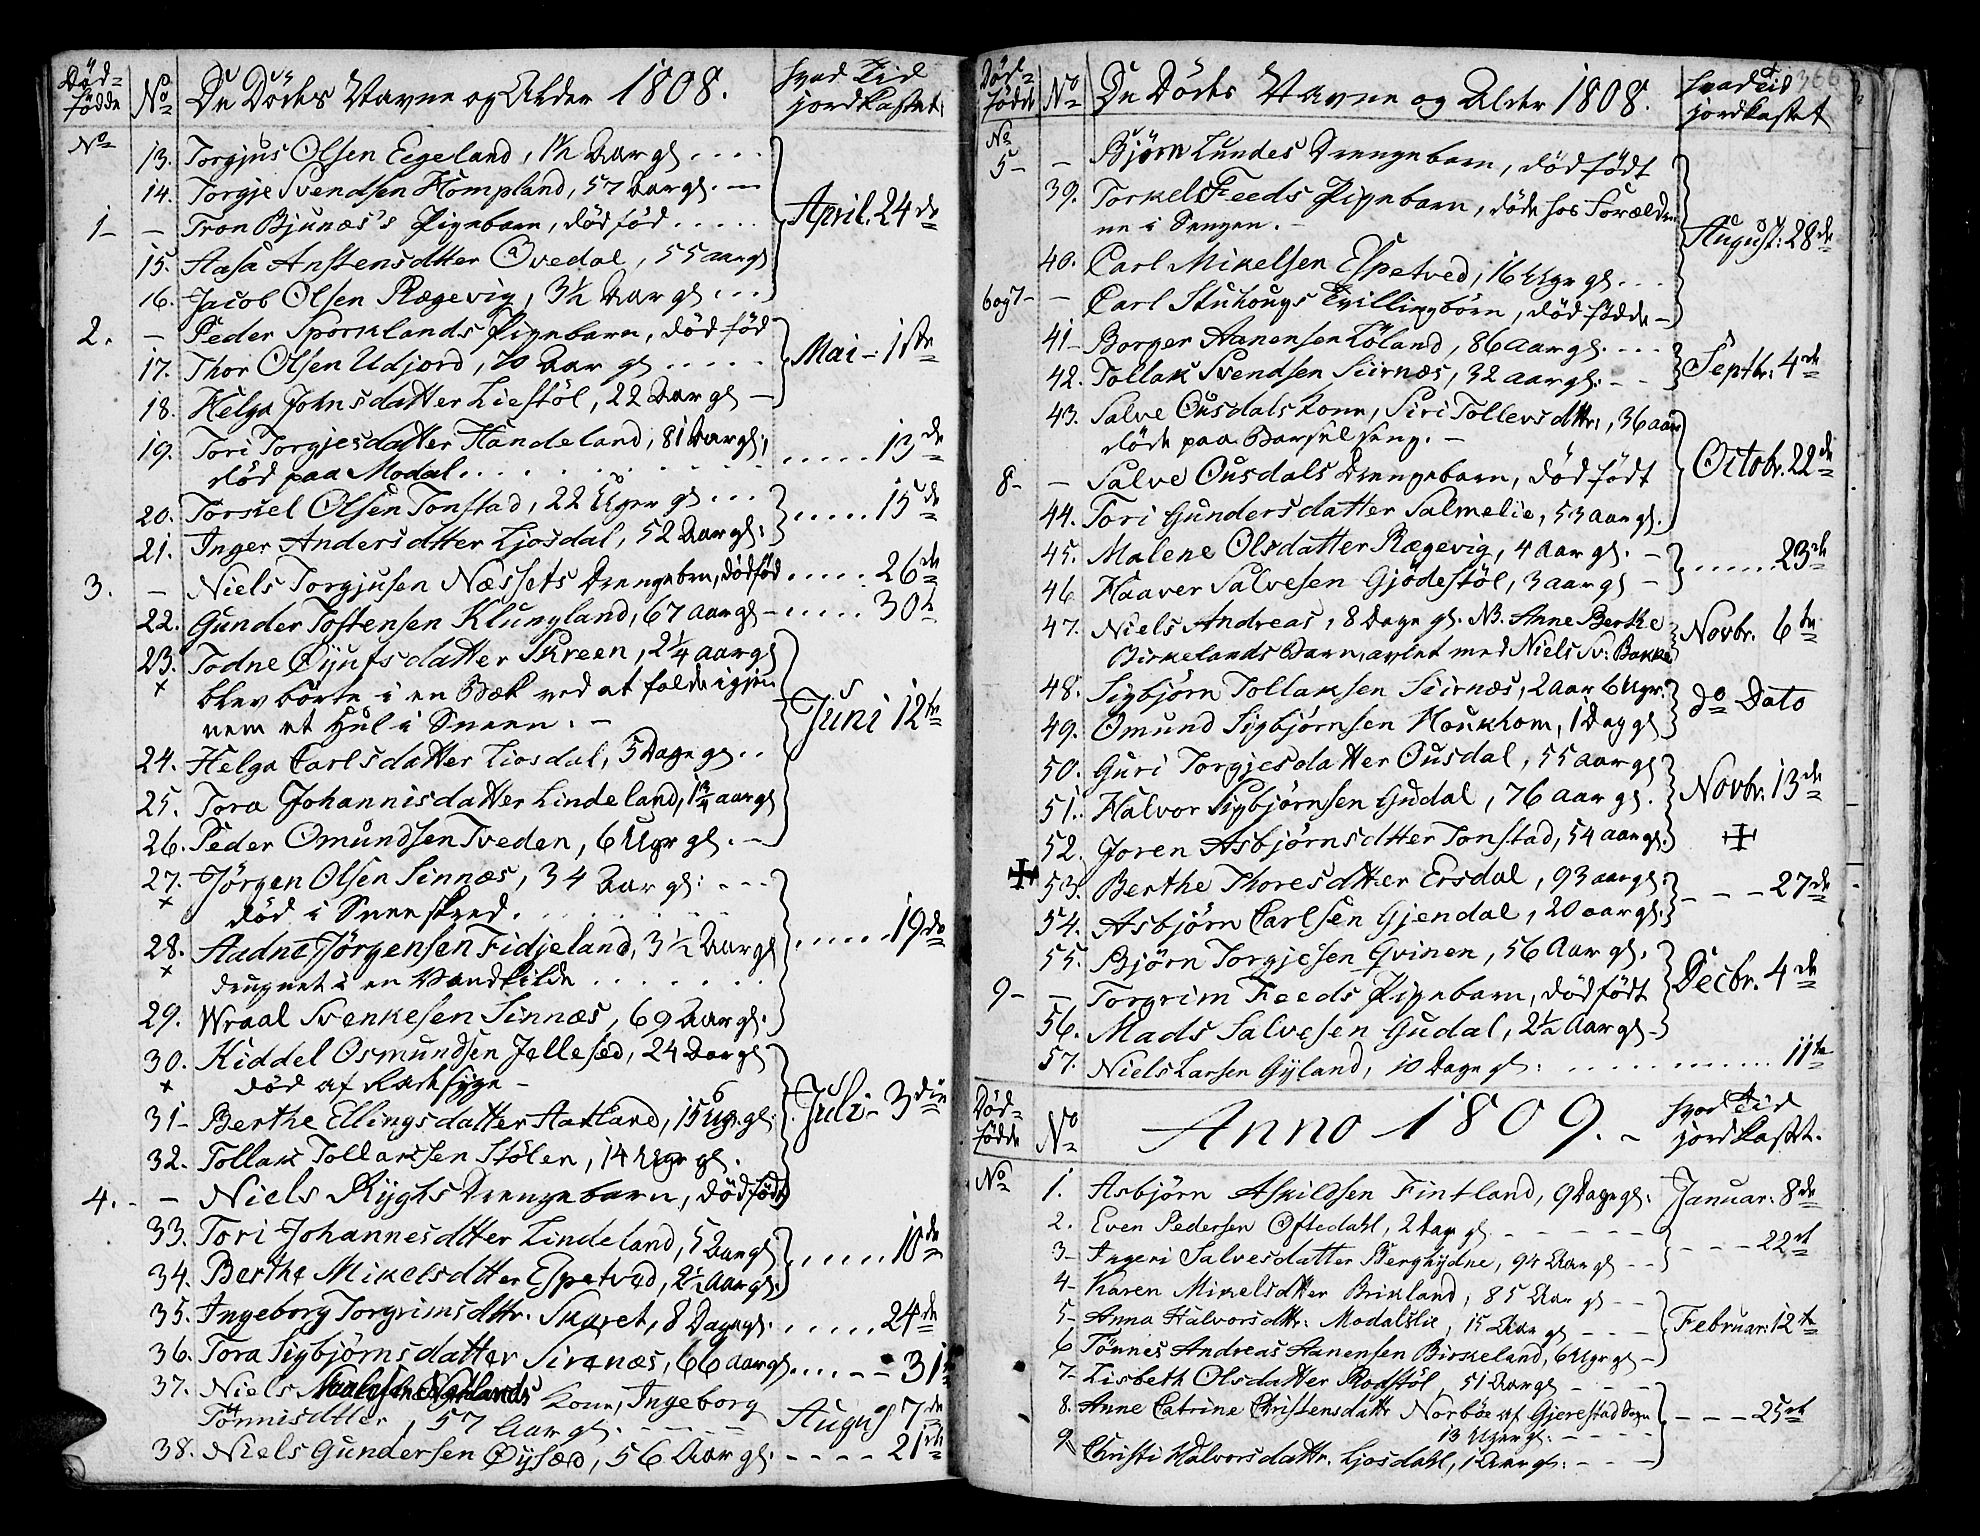 Død-
fødde
No
De Dödes Navne og Alder 1808.
hvad Tid
jordkastet
No
13. Torgjus Olsen Eigeland, 1½ Aar gl. . . .
14. Torgje Svendsen Hompland, 57 Aar gl. —
1 — Tron Bjunæs's Pigebarn, dödföd . . . . .
April. 24de
15. Aasa Anstensdtter Ovedal, 55 aar gl
16. Jacob Olsen Rægevig, 3½ Aar gl . . .
2. — Peder Sporklands Pigebarn, dödföd
17. Thor Olsen Udjord, 70 Aar gl . . . . .
Mai — 1ste
18. Helga Johnsdatter Liestöl, 22 Aar gl —
19. Tori Torgjesdatter Haudeland, 81 Aar gl,
död paa Modal . . . . . . . . . . . 13de
20. Torkel Olsen Tonstad, 22 Uger gl . . .
. . . . . 15de
21. Inger Andersdtter Ljosdal, 52 Aar gl.
3. — Niels Torgjusen Næssets Drengebrn, dödföd . . . . . 26de
22. Gunder Tostensen Klungland, 67 aar gl — . . . . 30te
23. Todne Öyufsdatter Skreen, 2¼ aar gl
× blev borte i en Bæk ved at falde igjen-
nem et Hul i Sneen. —
Juni 12te
24. Helga Carlsdatter Liosdal, 5 Dage gl . .
25. Tora Johannisdatter Lindeland, 1¾ aar gl
26. Peder Omundsen Tveden, 6 Uger gl. —
27. Jörgen Olsen Sinnæs, 34 Aar gl: - - -
× död i Sneeskred. . . . . . . . .
28. Aadne Jörgensen Fidjeland, 3½ Aar gl
. . . . . . 19de
× druknet i en Vandkilde . . . . . . .
29. Wraal Svenkesen Sinnæs, 69 Aar gl.
30. Kiddel Osmundsen Jellesed, 24 Aar gl
× död af Radesyge —
31 — Berthe Ellingsdatter Aatland, 15 Ugr. gl.
Juli — 3die
32. Tollak Tollaksen Stölen, 14 Uger gl.
4. — Niels Rygts Drengebarn, dödfödt
33. Tori Johannesdtter Lindeland, 5 Aar gl
. . . . . 10de
34. Berthe Mikelsdtter Espetved, 2½ Aar gl.
35. Ingeborg Torgrimsdttr. Skaret, 8 Dage gl. . . . . . 24de
36. Tora Sigbjörnsdatter Sirenæs, 66 aar gl. . . . - - 31
37. Niels Kone, Ingeborg
Tönnisdtter, 57 Aar gl. - - - - - August 7de
38. Niels Gundersen Öysæd, 56 Aar gl. - - - - 21de
Död-
fødde
No
De Dödes Navne og Alder 1808.
hvad Tid
jordkastet
366
No
5 — — Björn Lundes Drengebarn, dödfödt
39. Torkel Feeds Pigebarn, döde hos Forældre-
ne i Sengen. —
August: 28de
40. Carl Mikelsen Espetved, 16 Uger gl . . .
6 og 7 — — Carl Stuhougs Tvillingbörn, dödfödde —
41 — Borger Aanensen Löland, 86 aar gl. . . .
Septbr. 4de
42. Tollak Svendsen Siirnæs, 32 aar gl. - -
43. Salve Ousdals Kone, Siri Tollevsdttr., 36 aar
döde paa Barselseng. —
Octobr. 22de
8 — — Salve Ousdals Drengebarn, dödfödt
44. Tori Gundersdatter Salmelie, 53 aar gl.
45. Malene Olsdatter Rægevig, 4 Aar gl. —
. . . . . . . 23de
46. Haaver Salvesen Gjödestöl, 3 aar gl —
47. Niels Andreas, 8 Dage gl. NB. Anne Berthe
Birkelands Barn, avlet med Niels Sv: Bakke
Novbr. 6te
48. Sigbjörn Tollaksen Siirnæs, 2 Aar 6 Ugr.
do Dato
49. Omund Sigbjörnsen Houkhom, 1 Dag gl
50. Guri Torgjesdatter Ousdal, 55 aar gl
51. Halvor Sigbjörnsen Gudal, 76 aar gl.
Novbr. 13de
52. Joren Asbjörnsdtter Tonstad, 54 aar gl.
53. Berthe Thoresdtter Ersdal, 93 aar gl.
- - - 27de
54. Asbjörn Carlsen Gjendal, 20 aar gl.
55. Björn Torgjesen Qvinen, 56 Aar gl.
9 — — Torgrim Feeds Pigebarn, dödfödt
Decbr. 4de
56. Mads Salvesen Gudal, 2½ Aar gl —
57. Niels Larsen Gyland, 10 Dage gl. . . . . . . . . . . . . 11te
Død-
födde
No
Anno 1809. —
hvad Tid
jordkastet.
No
1. Asbjörn Askildsen Fintland, 9 Dage gl. Januar: 8de
2. Even Pedersen Oftedahl, 2 Dage gl - - - - -
- - - 22de
3 — Ingeri Salvesdatter Berghydne, 94 Aar gl - -
4 — Karen Mikelsdtter Brikland, 85 Aar gl - -
5 — Anna Halvorsdttr. Modalslie, 15 Aar gl - - -
Februar: 12te
6 Tönnes Andreas Aanensen Birkeland, 6 Uger gl —
7 — Lisbeth Olsdatter Rodstöl, 51 Aar gl - - - -
8. Anne Catrine Christensdattr Norböe af Gjerestad Sogn
13 Uger gl. - - - -
- - - 25de
9. Christi Halvorsdattr. Ljosdahl, 1 Aar gl. - - -